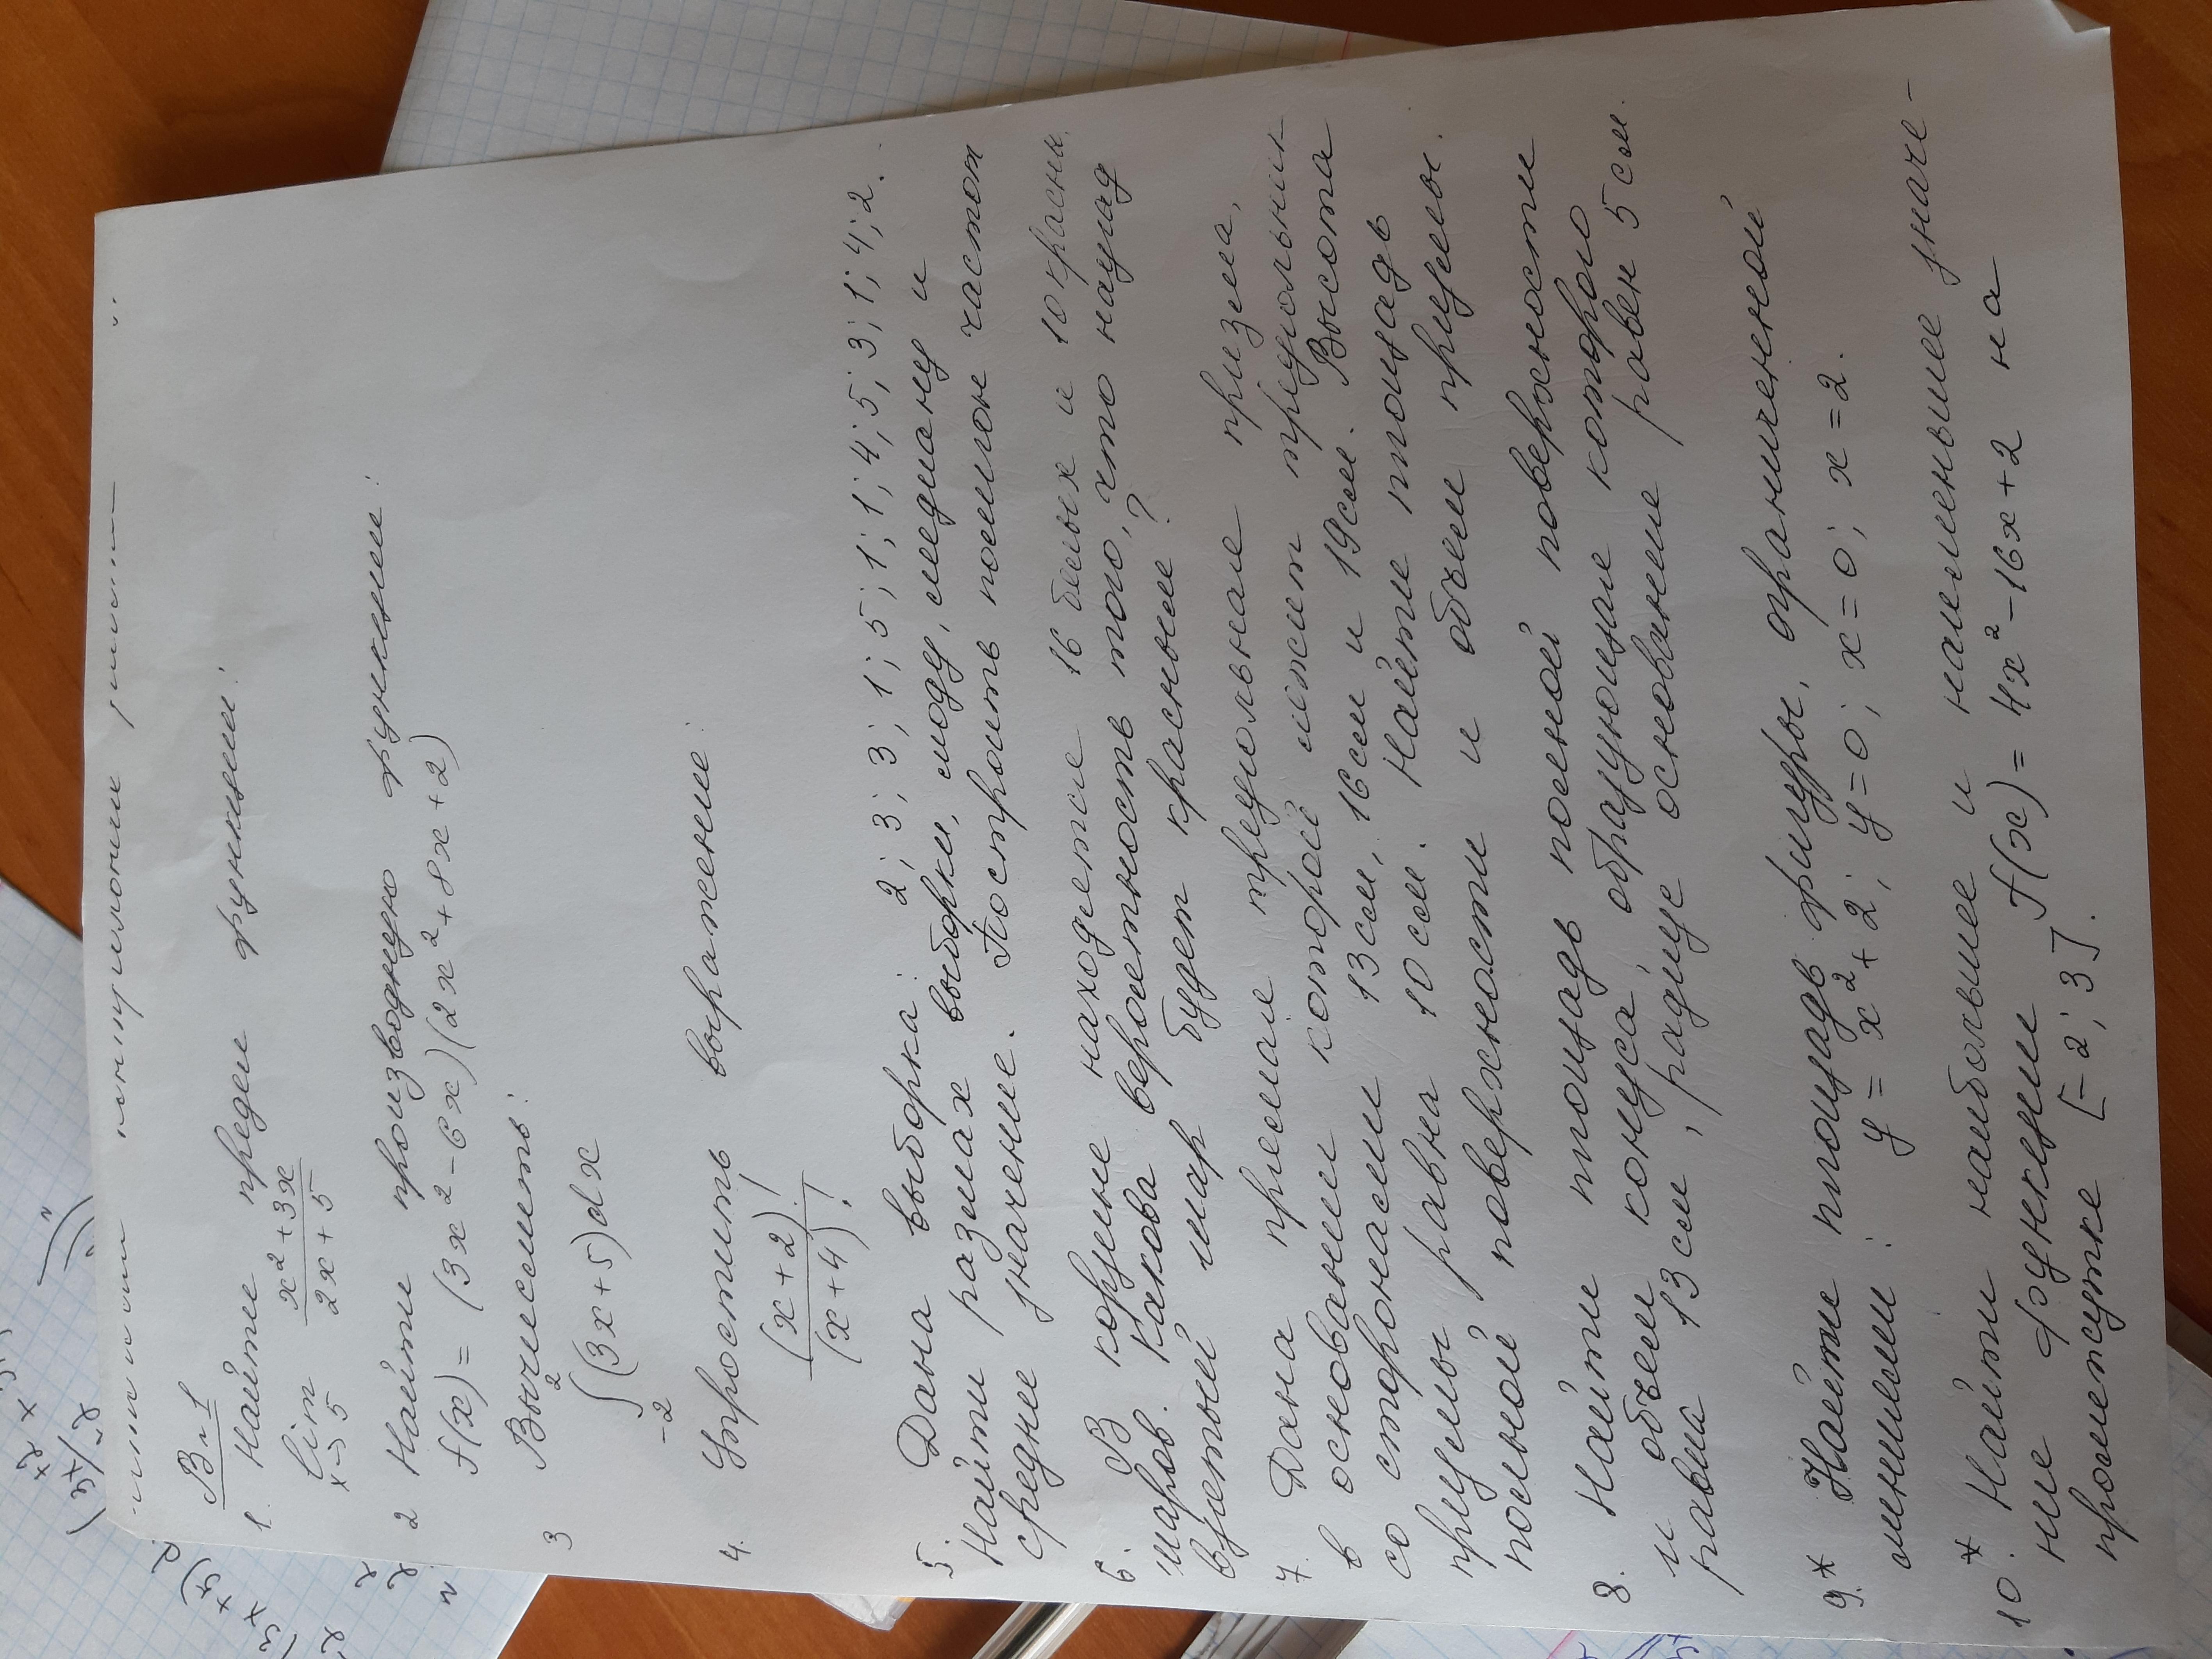 В-1
1. Найти предел функции:
lim x→5 (x²+3x)/(2x+5)
2 Найти производную функции:
f(x) = (3x²-6x)(2x²+8x+2)
3 Вычислить:
∫₋₂² (3x+5)dx
4. Упростить выражение:
(x+2)!/(x+4)!
5. Дана выборка: 2; 3; 3; 1; 5; 1; 1; 4; 5; 3; 1; 4; 2.
Найти размах выборки, моду, медиану и
среднее значение. Построить полигон частот
6. В корзине находятся 16 белых и 10 красн.
шаров. Какова вероятность того, что наугад
взятый шар будет красным?
7. Дана прямая треугольная призма,
в основании которой лежит треугольник
со сторонами 13 см, 16 см и 19 см. Высота
призмы равна 10 см. Найти площадь
полной поверхности и объем призмы.
8. Найти площадь полной поверхности
и объем конуса, образующая которого
равна 13 см, радиус основания равен 5 см.
9.* Найти площадь фигуры, ограниченной
линиями: y = x²+2; y=0; x=0; x=2.
10.* Найти наибольшее и наименьшее значе-
ние функции f(x) = 4x²-16x+2 на
промежутке [-2; 3].